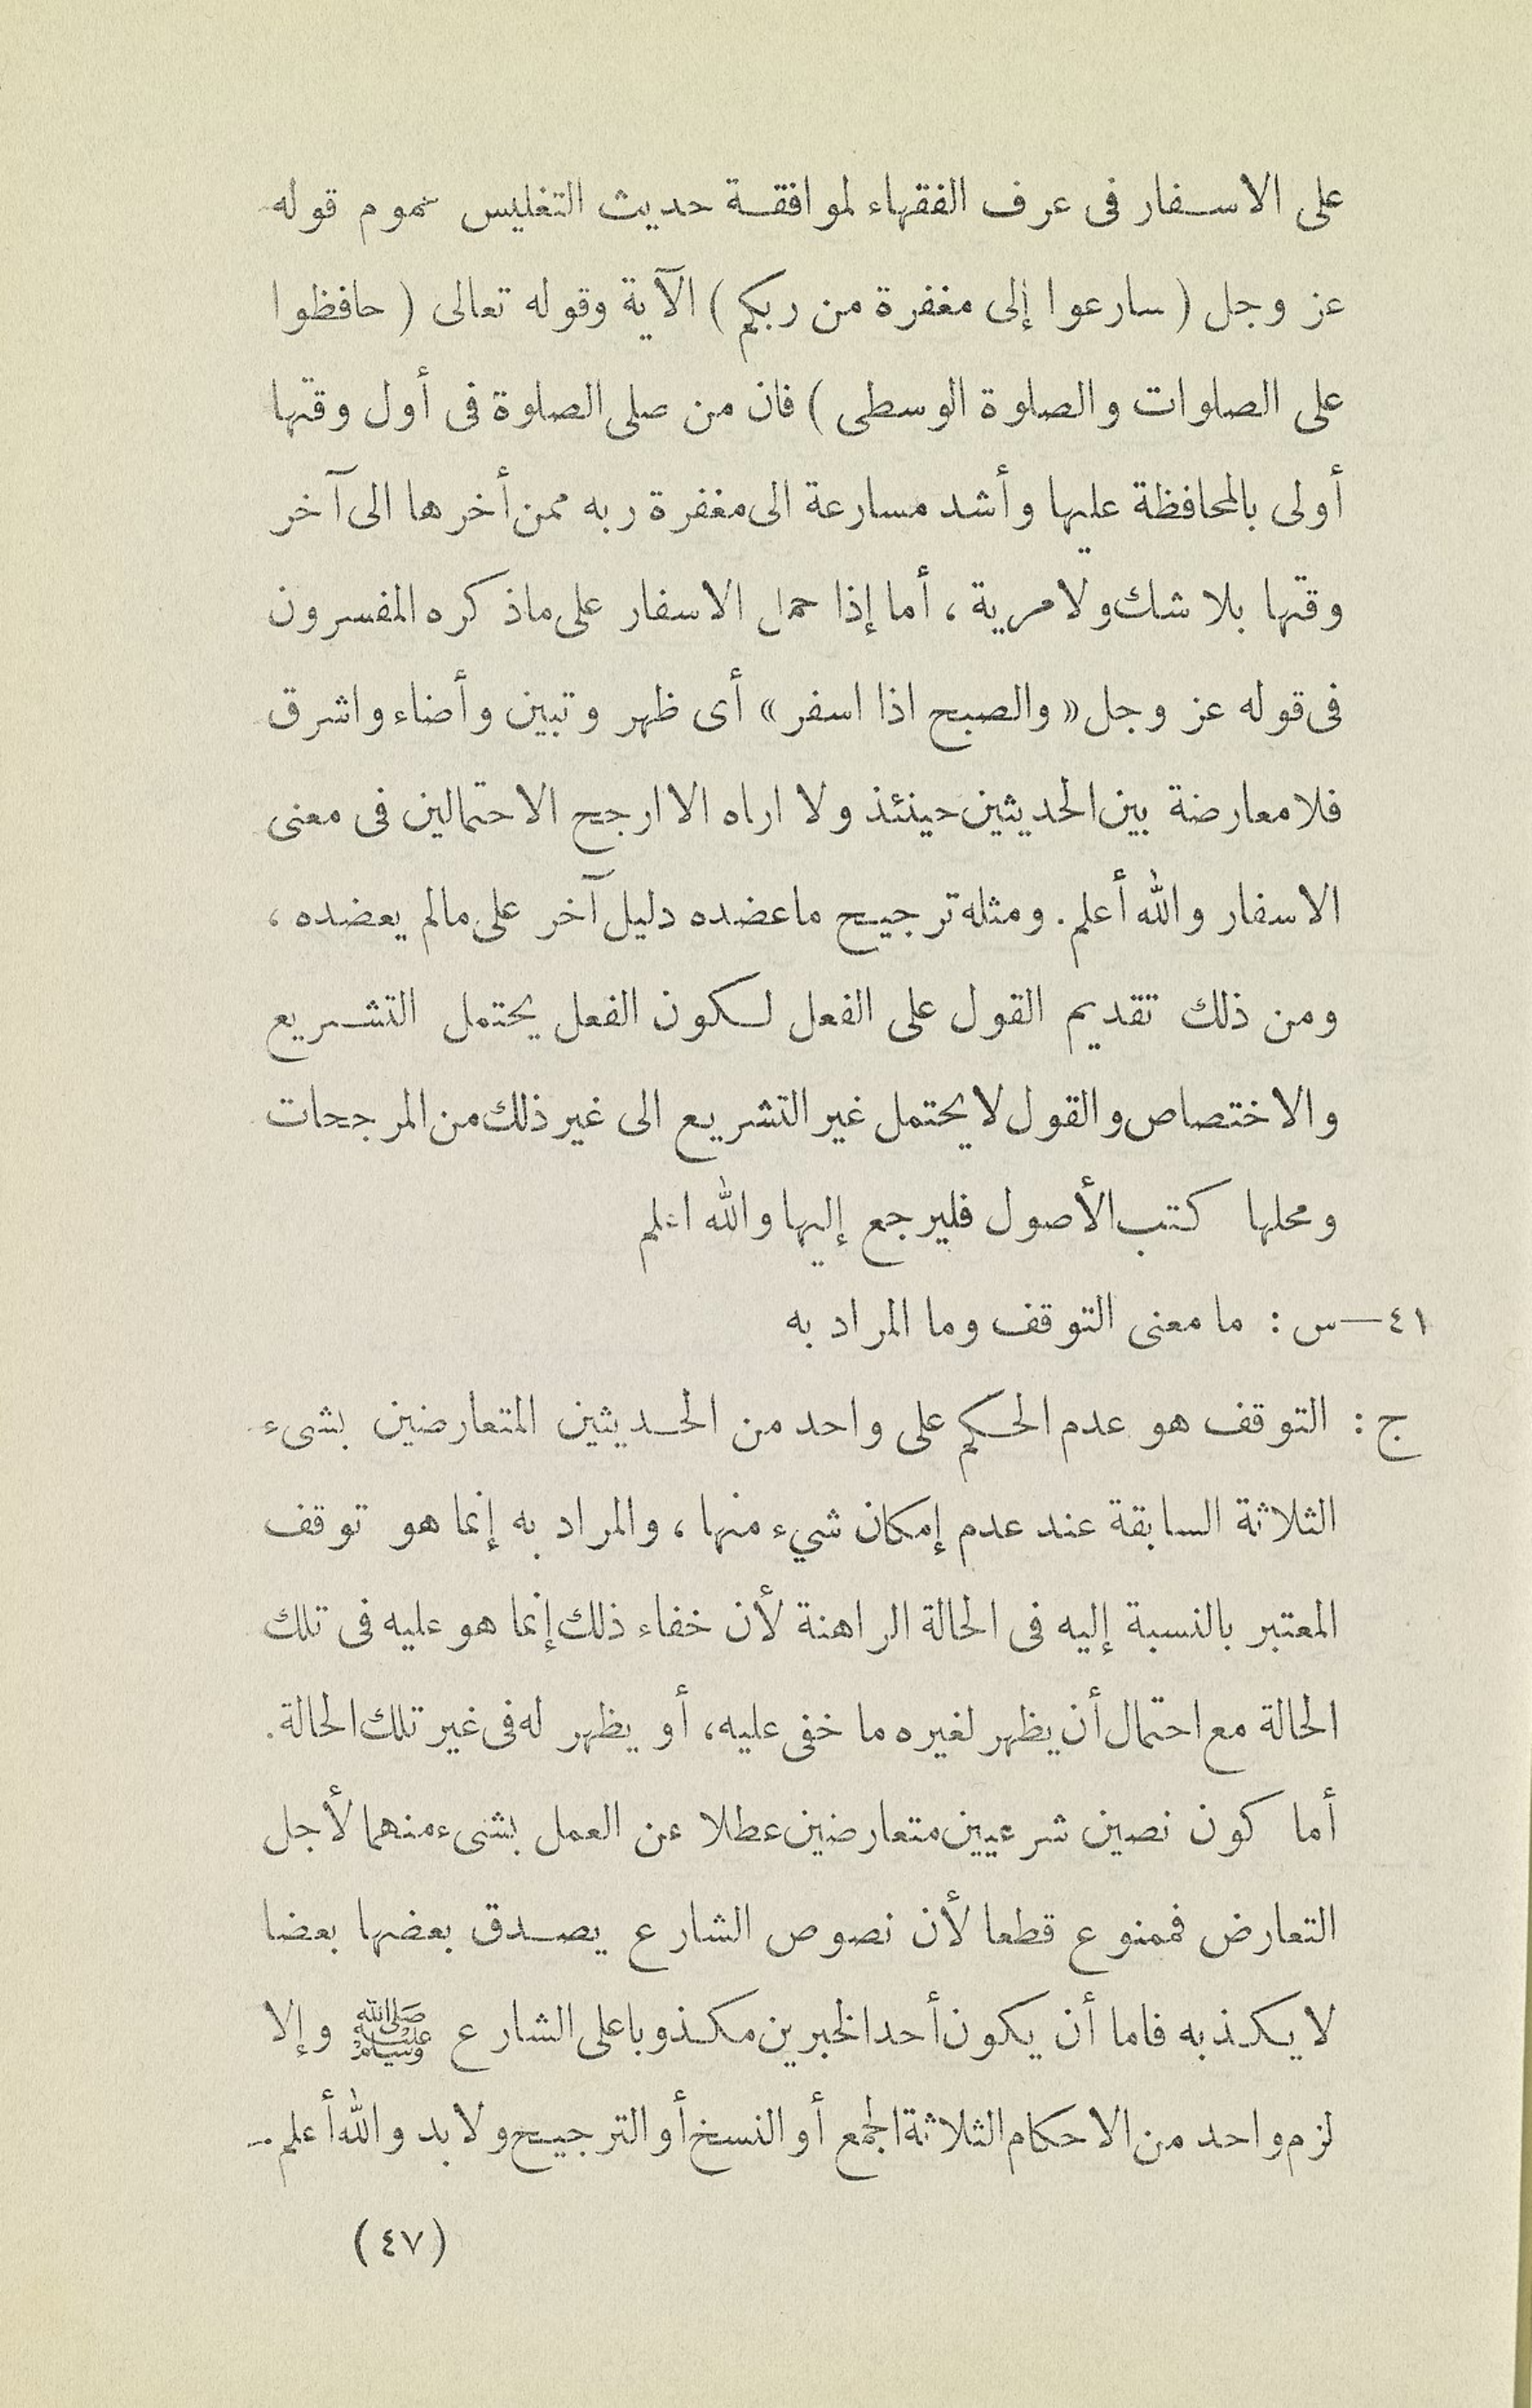 على الاسفار فى عرف الفقهاء لموافقة حديث التغليس عموم قوله
عز وجل ( سارعوا إلى مغفرة من ربكم ) الآية وقوله تعالى ( حافظوا
على الصلوات والصلوة الوسطى ) فان من صلى الصلوة فى أول وقتها
أولى بالمحافظة عليها وأشد مسارعة الى مغفرة ربه ممن أخرها الى آخر
وقتها بلا شك ولا مرية ، أما إذا حمل الاسفار على ماذكره المفسرون
فى قوله عز وجل « والصبح اذا اسفر » أى ظهر وتبين وأضاء واشرق
فلا معارضة بين الحديثين حينئذ ولا اراه الا ارجح الاحتمالين فى معنى
الاسفار والله أعلم . ومثله ترجيح ما عضده دليل آخر على مالم يعضده ،
ومن ذلك تقديم القول على الفعل لكون الفعل يحتمل التشريع
والاختصاص والقول لا يحتمل غير التشريع الى غير ذلك من المرجحات
ومحلها كتب الأصول فليرجع إليها والله اعلم
٤١ — س : ما معنى التوقف وما المراد به
ج : التوقف هو عدم الحكم على واحد من الحديثين المتعارضين بشىء
الثلاثة السابقة عند عدم إمكان شيء منها ، والمراد به إنما هو توقف
المعتبر بالنسبة إليه فى الحالة الراهنة لأن خفاء ذلك إنما هو عليه فى تلك
الحالة مع احتمال أن يظهر لغيره ما خفى عليه ، أو يظهر له فى غير تلك الحالة .
أما كون نصين شرعيين متعارضين عطلا عن العمل بشىء منهما لأجل
التعارض فممنوع قطعا لأن نصوص الشارع يصدق بعضها بعضا
لا يكذبه فاما أن يكون أحد الخبرين مكذوبا على الشارع ﷺ وإلا
لزم واحد من الاحكام الثلاثة الجمع أو النسخ أو الترجيح ولا بد والله أعلم .
( ٤٧ )